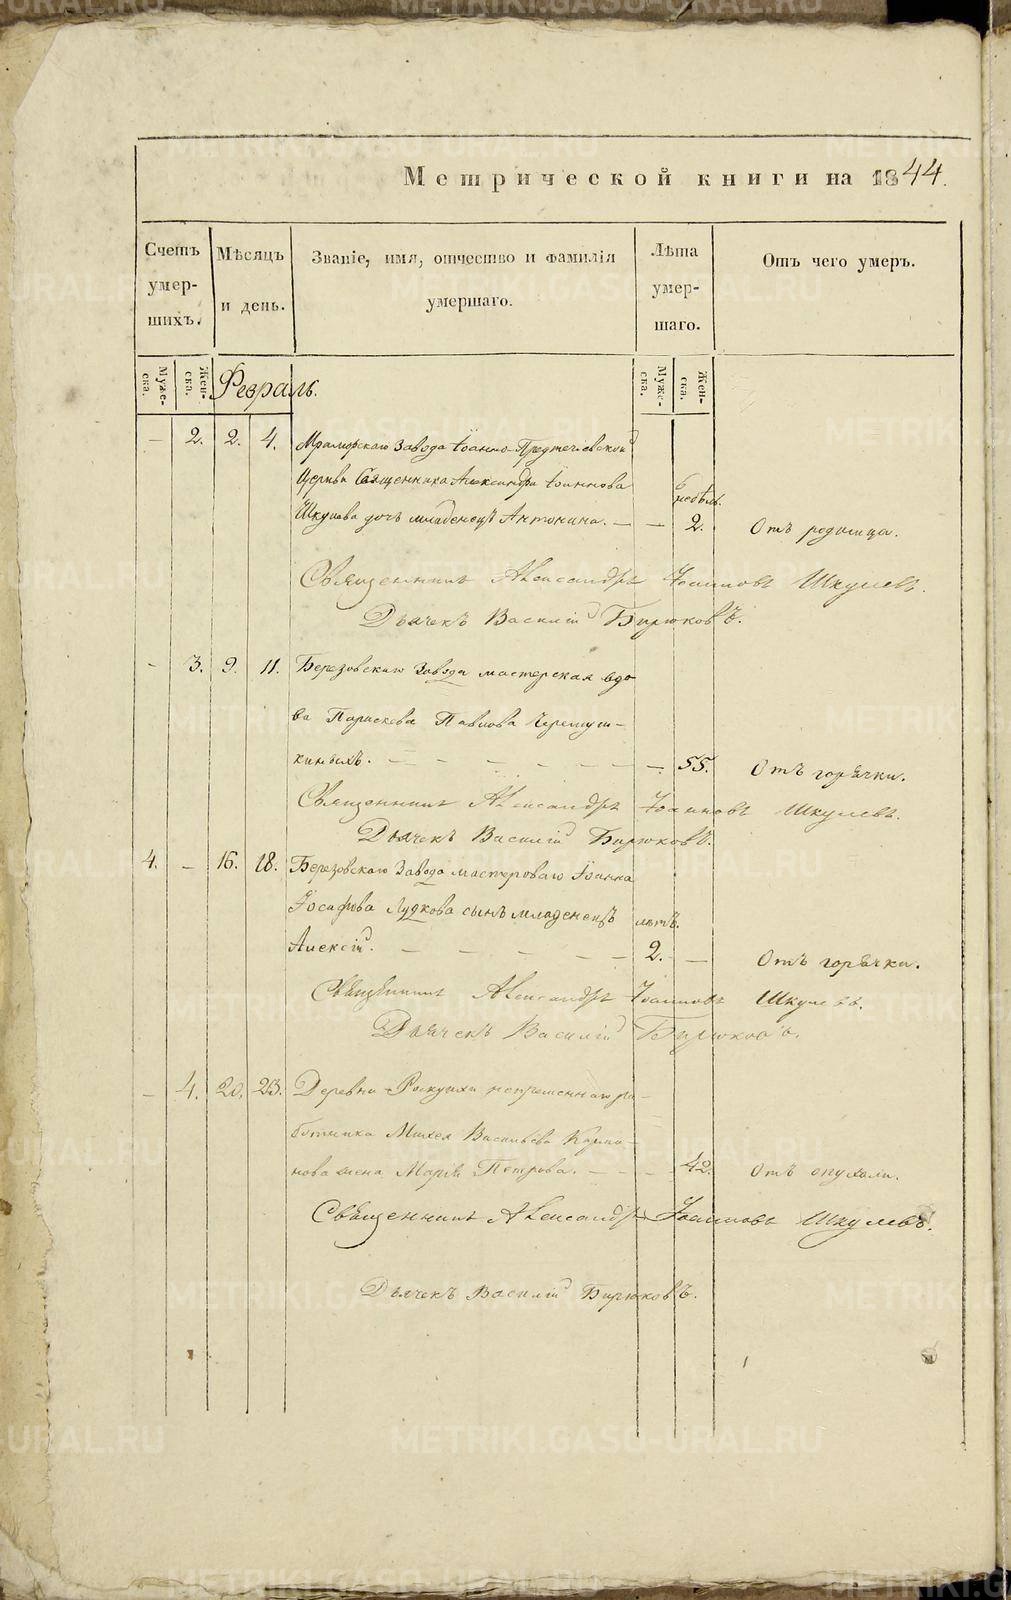 Метрической книги на 1844.
Счетъ умер-шихъ.
Мѣсяцъ и день.
Званіе, имя, отчество и фамилія умершаго.
Лѣта умер-шаго.
Отъ чего умеръ.
Муже-ска.
Жен-ска.
Февраль.
Муже-ска.
Жен-ска.
— 2. 2. 4. Мраморскаго Завода Іоанно-Предтечіевской
Церкви Священника Александра Іоаннова 6 недѣль.
Шкулева дочь младенецъ Антонина. — — 2. Отъ родимца.
Священникъ Александръ Іоанновъ Шкулевъ.
Дьячекъ Василій Бирюковъ.
— 3. 9. 11. Березовскаго Завода мастерская вдо
ва Параскева Павлова Черемуш-
киныхъ. — — 55. Отъ горячки.
Священникъ Александръ Іоанновъ Шкулевъ.
Дьячекъ Василій Бирюковъ.
4. — 16. 18. Березовскаго Завода мастероваго Іоанна
Іосафова Лудкова сынъ младенецъ лѣтъ.
Алексій. — 2. — Отъ горячки.
Священникъ Александръ Іоанновъ Шкулевъ.
Дьячекъ Василій Бирюковъ.
— 4. 20. 23. Деревни непременнаго ра-
ботника Михея Васильева
нова жена Марія Петрова. — — 42. Отъ опухоли.
Священникъ Александръ Іоанновъ Шкулевъ.
Дьячекъ Василій Бирюковъ.
METRIKI.GASO-URAL.RU